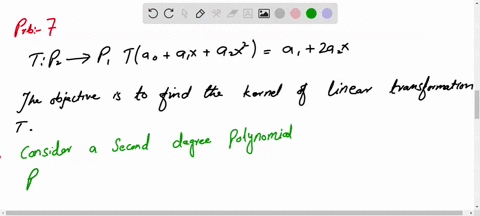 Prb:- 7
T: P₂ → P₁ T(a₀ + a₁x + a₂x²) = a₁ + 2a₂x
The objective is to find the kernel of linear transformation
T.
Consider a Second degree Polynomial
P